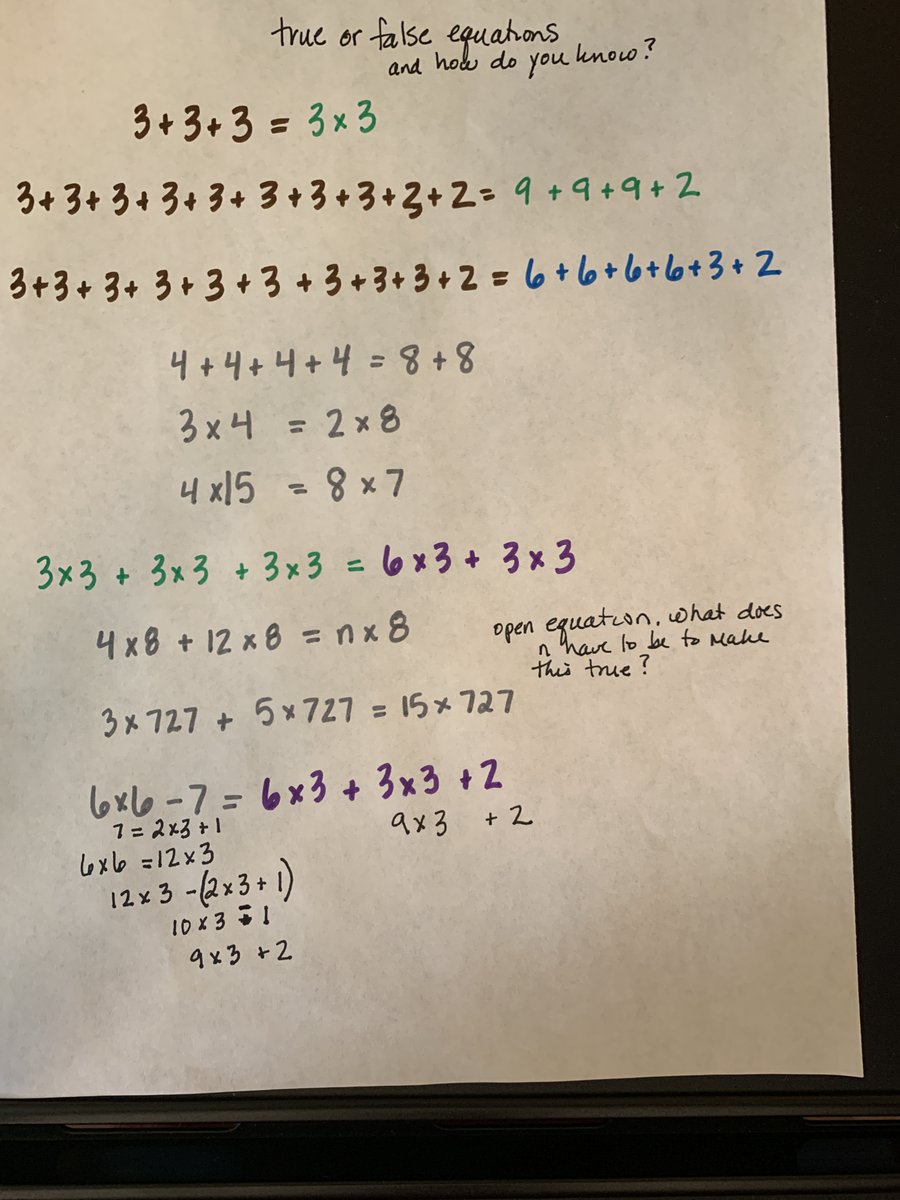 true or false equations
and how do you know?
3+3+3 = 3x3
3+3+3+3+3+3+3+3+3+2= 9+9+9+2
3+3+3+3+3+3+3+3+3+2 = 6+6+6+6+3+2
4+4+4+4 = 8+8
3x4 = 2x8
4x15 = 8x7
3x3 + 3x3 + 3x3 = 6x3 + 3x3
4x8 + 12x8 = nx8
open equation. what does
n have to be to make
this true?
3x727 + 5x727 = 15x727
6x6-7 = 6x3 + 3x3 +2
7=2x3+1
9x3 +2
6x6 =12x3
12x3 -(2x3+1)
10x3 - 1
9x3 +2